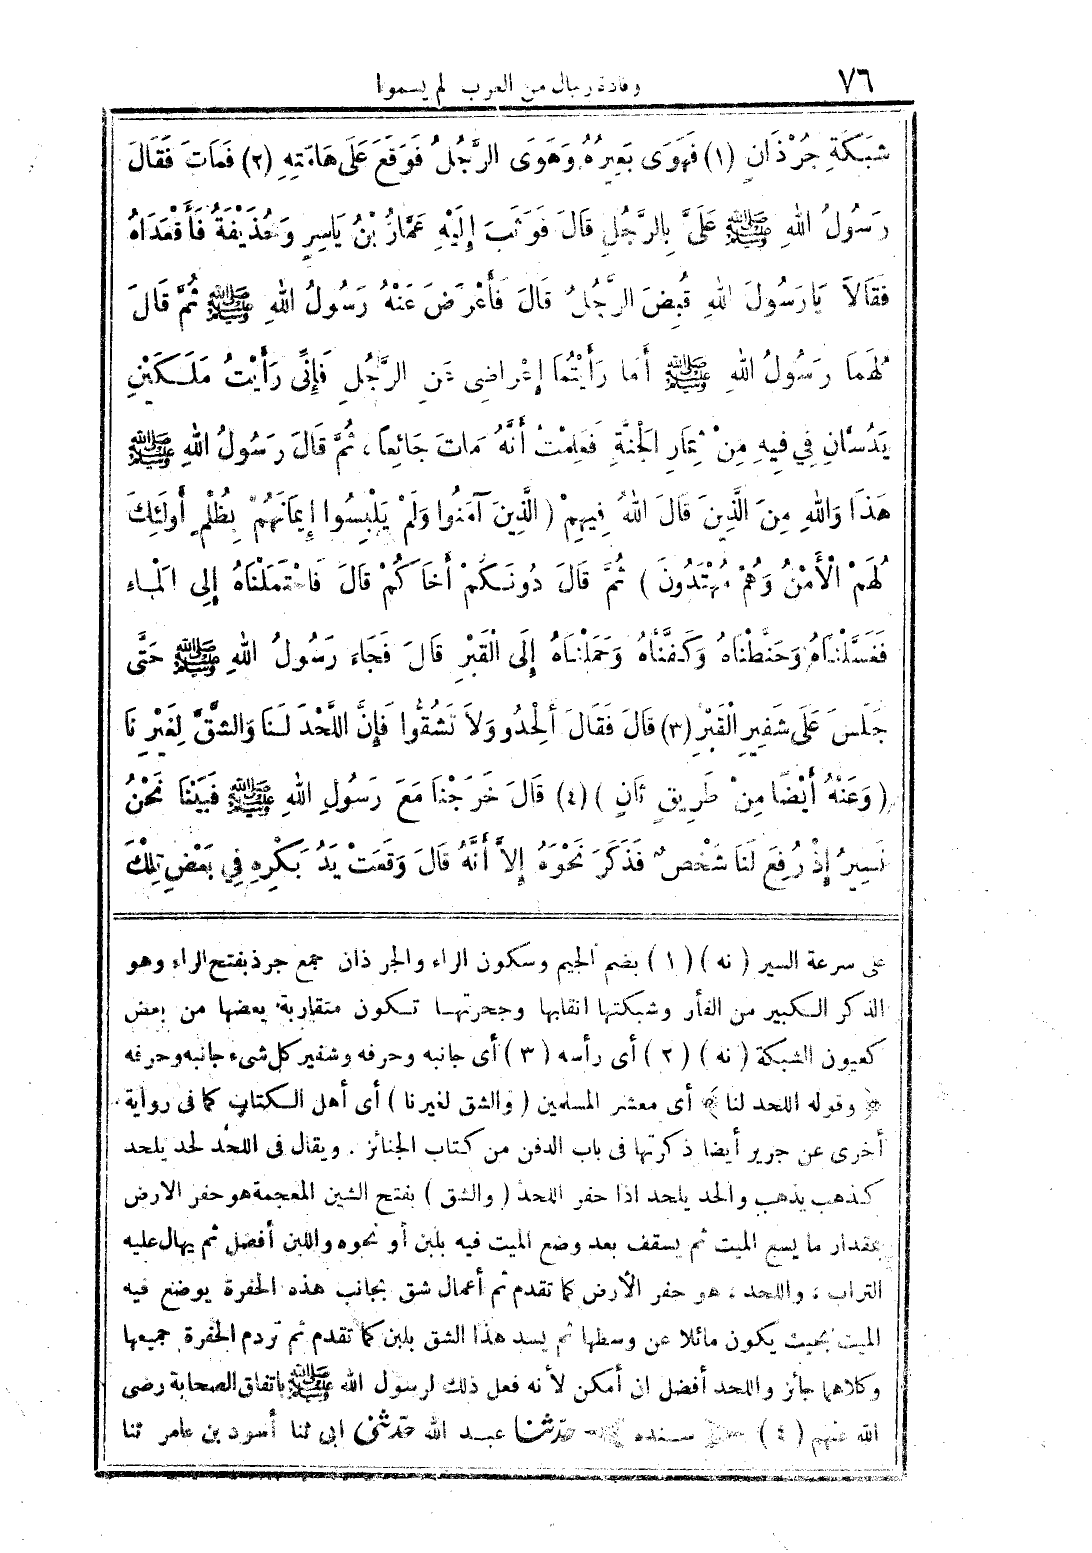 ٧٦ وفادة رجال من العرب لم يسموا
شَبَكَةِ جُرْذَانٍ (١) فَهَوَى بَعِيرُهُ وَهَوَى الرَّجُلُ فَوَقَعَ عَلَى هَامَتِهِ (٢) فَمَاتَ فَقَالَ
رَسُولُ اللهِ ﷺ عَلَيَّ بِالرَّجُلِ قَالَ فَوَثَبَ إِلَيْهِ عَمَّارُ بْنُ يَاسِرٍ وَحُذَيْفَةُ فَأَقْعَدَاهُ
فَقَالَا يَارَسُولَ اللهِ قُبِضَ الرَّجُلُ قَالَ فَأَعْرَضَ عَنْهُ رَسُولُ اللهِ ﷺ ثُمَّ قَالَ
لَهُمَا رَسُولُ اللهِ ﷺ أَمَا رَأَيْتُمَا إِعْرَاضِي عَنِ الرَّجُلِ فَإِنِّي رَأَيْتُ مَلَكَيْنِ
يَدُسَّانِ فِي فِيهِ مِنْ ثِمَارِ الْجَنَّةِ فَعَلِمْتُ أَنَّهُ مَاتَ جَائِعاً، ثُمَّ قَالَ رَسُولُ اللهِ ﷺ
هَذَا وَاللهِ مِنَ الَّذِينَ قَالَ اللهُ فِيهِمْ (الَّذِينَ آمَنُوا وَلَمْ يَلْبِسُوا إِيمَانَهُمْ بِظُلْمٍ أُولَئِكَ
لَهُمُ الْأَمْنُ وَهُمْ مُهْتَدُونَ) ثُمَّ قَالَ دُونَكُمْ أَخَاكُمْ قَالَ فَاحْتَمَلْنَاهُ إِلَى الْمَاءِ
فَغَسَّلْنَاهُ وَحَنَّطْنَاهُ وَكَفَّنَّاهُ وَحَمَلْنَاهُ إِلَى الْقَبْرِ قَالَ فَجَاءَ رَسُولُ اللهِ ﷺ حَتَّى
جَلَسَ عَلَى شَفِيرِ الْقَبْرِ (٣) قَالَ فَقَالَ أَلْحِدُوا وَلَا تَشُقُّوا فَإِنَّ اللَّحْدَ لَنَا وَالشَّقَّ لِغَيْرِنَا
(وَعَنْهُ أَيْضًا مِنْ طَرِيقٍ ثَانٍ) (٤) قَالَ خَرَجْنَا مَعَ رَسُولِ اللهِ ﷺ فَبَيْنَا نَحْنُ
نَسِيرُ إِذْ رُفِعَ لَنَا شَخْصٌ فَذَكَرَ نَحْوَهُ إِلَّا أَنَّهُ قَالَ وَقَعَتْ يَدُ بَكْرِهِ فِي بَعْضِ تِلْكَ
على سرعة السير (نه) (١) بضم الجيم وسكون الراء والجرذان جمع جرذ بفتح الراء وهو
الذكر الكبير من الفأر وشبكتها انقابها وجحرتها تكون متقاربة بعضها من بعض
كعيون الشبكة (نه) (٢) أى رأسه (٣) أى جانبه وحرفه وشفير كل شيء جانبه وحرفه
﴿وقوله اللحد لنا﴾ أى معشر المسلمين (والشق لغيرنا) أى أهل الكتاب كما فى رواية
أخرى عن جرير أيضا ذكرتها فى باب الدفن من كتاب الجنائز . ويقال فى اللحد لحد يلحد
كذهب يذهب وألحد يلحد اذا حفر اللحد (والشق) بفتح الشين المعجمة هو حفر الارض
بمقدار ما يسع الميت ثم يسقف بعد وضع الميت فيه بلبن أو نحوه واللبن أفضل ثم يهال عليه
التراب، واللحد، هو حفر الأرض كما تقدم ثم أعمال شق بجانب هذه الحفرة يوضع فيه
الميت بحيث يكون مائلا عن وسطها ثم يسد هذا الشق بلبن كما تقدم ثم تردم الحفرة جميعها
وكلاهما جائز واللحد أفضل ان أمكن لأنه فعل ذلك لرسول الله ﷺ باتفاق الصحابة رضى
الله عنهم (٤) ﴿سنده﴾ حدّثنا عبد الله حدّثنى ابى ثنا أسود بن عامر ثنا